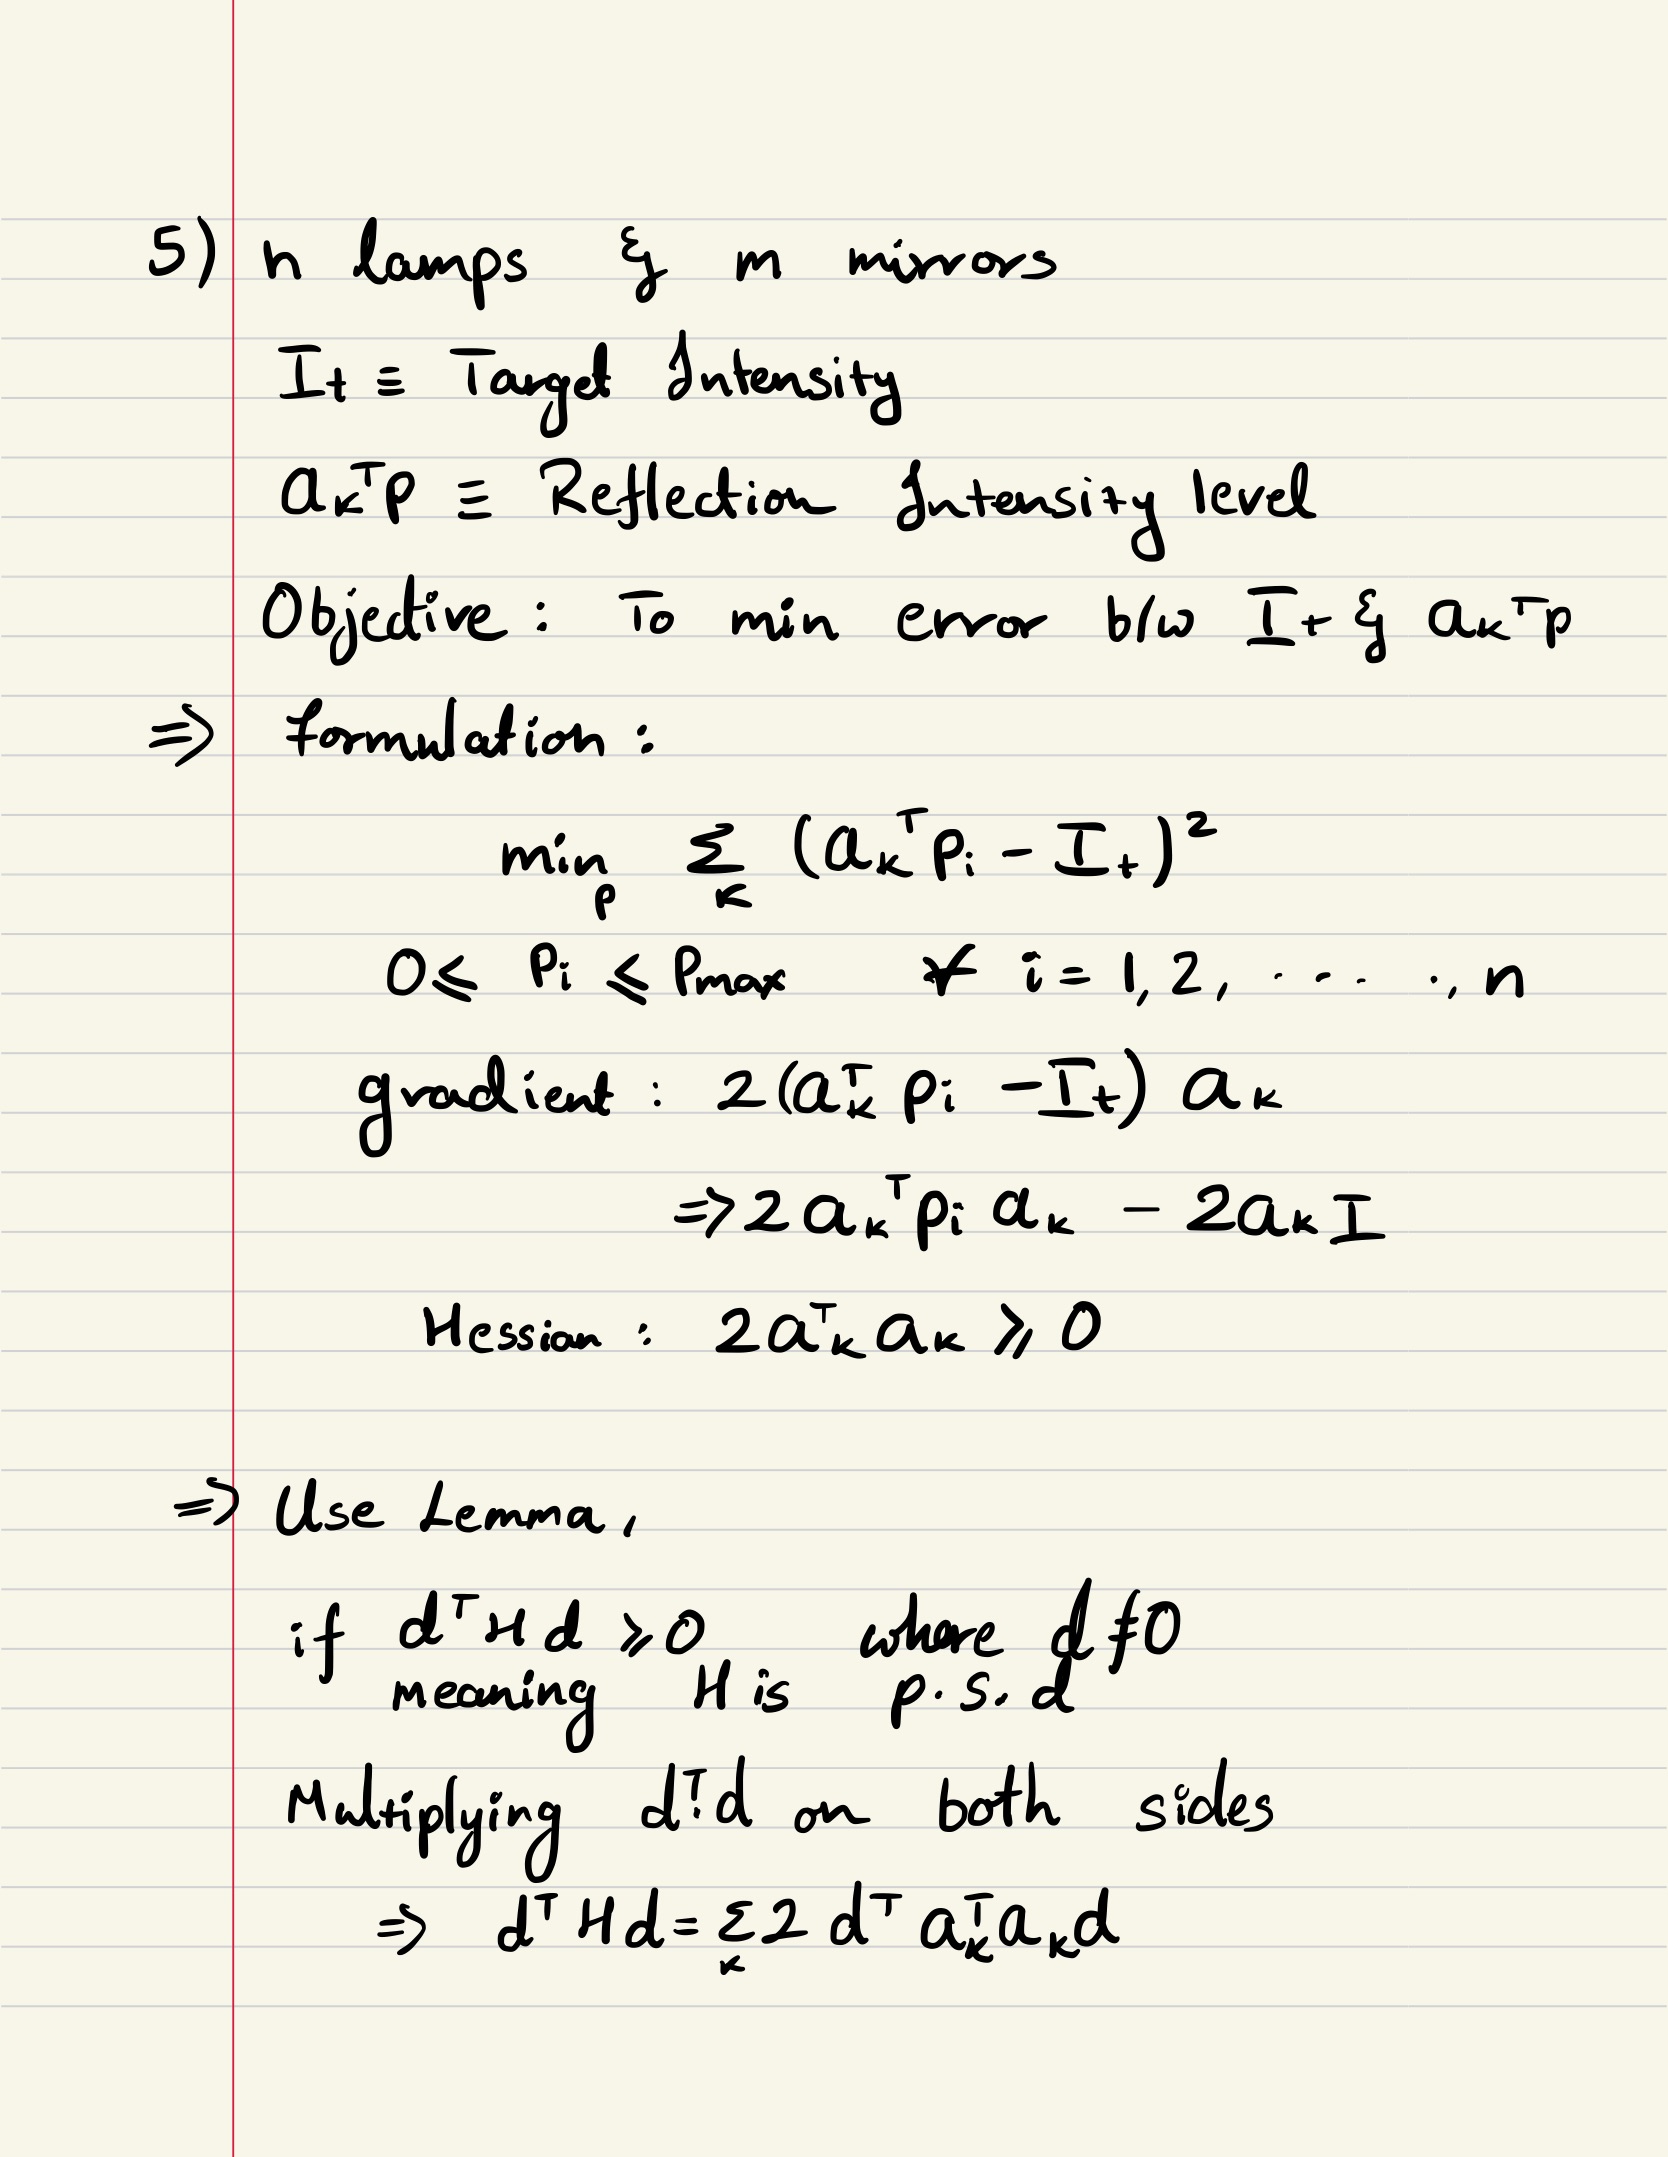 5) n lamps & m mirrors
I_t ≡ Target Intensity
a_k^T p ≡ Reflection Intensity level
Objective : To min error b/w I_t & a_k^T p
⇒ formulation :
min_p Σ_k (a_k^T p_i - I_t)^2
0 ≤ p_i ≤ p_max ∀ i = 1, 2, . . . . ., n
gradient : 2(a_k^T p_i - I_t) a_k
⇒ 2 a_k^T p_i a_k - 2 a_k I
Hessian : 2 a_k^T a_k ⩾ 0
⇒ Use Lemma,
if d^T H d ⩾ 0 where d ≠ 0
meaning H is p.s.d
Multiplying d^T . d on both sides
⇒ d^T H d = Σ_k 2 d^T a_k^T a_k d